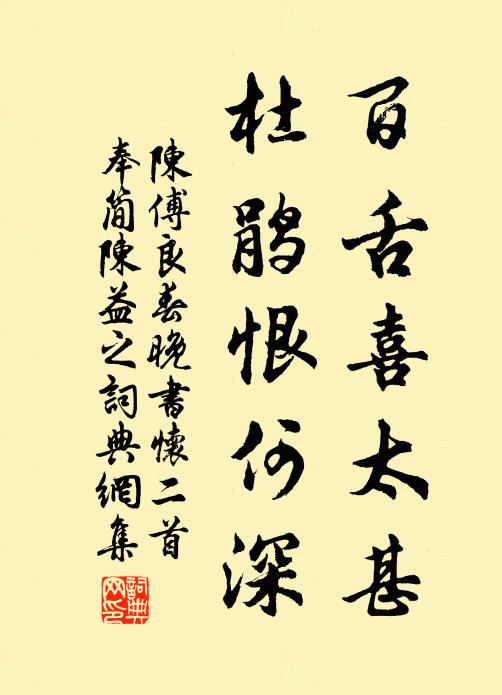 百舌喜太甚
杜鹃恨何深
陳傅良春晚書懷二首
奉簡陳益之詞典網集
詞典
网印